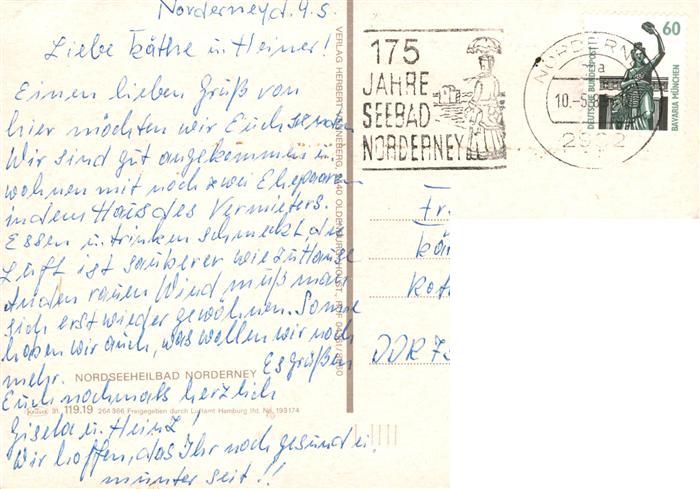 Norderney d. 9.5.
Liebe Käthe u. Heiner!
Einen lieben Gruß von
hier möchten wir Euch senden
Wir sind gut angekommen u.
wohnen mit noch zwei Ehepaaren
in dem Haus des Vermieters.
Essen u. trinken schmeckt, die
Luft ist sauberer wie zu Hause
An den rauen Wind muß man
sich erst wieder gewöhnen. Sonne
haben wir auch, was wollen wir noch
mehr. Es grüßen
Euch nochmals herzlich
Gisela u. Heinz!
Wir hoffen, das Ihr noch gesund u.
munter seit!!
NORDSEEHEILBAD NORDERNEY
31. 119.19 264 366 Freigegeben durch Luftamt Hamburg lfd. Nr. 193174
VERLAG HERBERT
OLDENBURG/HOLST.
175
JAHRE
SEEBAD
NORDERNEY
NORDERNEY
a
10.-5.8
2982
60
DEUTSCHE BUNDESPOST
BAVARIA MÜNCHEN
Fr.
Kä
DDR 73